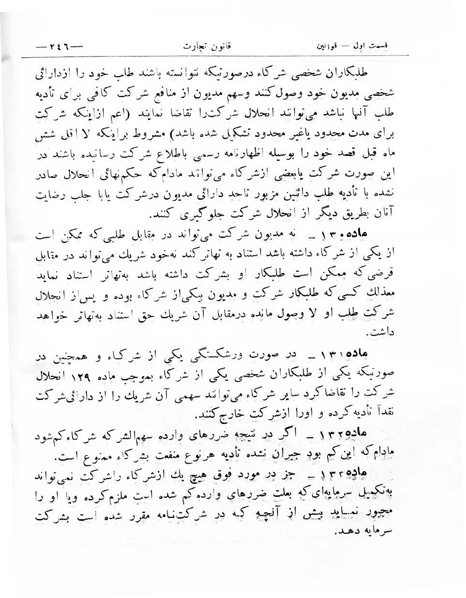 قسمت اول — قوانین
قانون تجارت
—٢٤٦—
طلبکاران شخصی شرکاء درصورتیکه نتوانسته باشند طلب خود را ازدارائی
شخصی مدیون خود وصول‌کنند وسهم مدیون از منافع شرکت کافی برای تأدیه
طلب آنها نباشد می‌توانند انحلال شرکت‌را تقاضا نمایند (اعم ازاینکه شرکت
برای مدت محدود یاغیر محدود تشکیل شده باشد) مشروط براینکه لا اقل شش
ماه قبل قصد خود را بوسیله اظهارنامه رسمی باطلاع شرکت رسانیده باشند در
این صورت شرکت یابعضی ازشرکاء می‌توانند مادام‌که حکم‌نهائی انحلال صادر
نشده با تأدیه طلب دائنین مزبور تاحد دارائی مدیون درشرکت یابا جلب رضایت
آنان بطریق دیگر از انحلال شرکت جلوگیری کنند.
ماده١٣٠ — نه مدیون شرکت می‌تواند در مقابل طلبی‌که ممکن است
از یکی از شرکاء داشته باشد استناد به تهاترکند نه‌خود شریك می‌تواند در مقابل
قرضی‌که ممکن است طلبکار او بشرکت داشته باشد به‌تهاتر استناد نماید
معذلك کسی‌که طلبکار شرکت و مدیون یکی‌از شرکاء بوده و پس‌از انحلال
شرکت طلب او لا وصول مانده درمقابل آن شریك حق استناد به‌تهاتر خواهد
داشت.
ماده١٣١ — در صورت ورشکستگی یکی از شرکاء و همچنین در
صورتیکه یکی از طلبکاران شخصی یکی از شرکاء بموجب ماده ١٢٩ انحلال
شرکت را تقاضاکرد سایر شرکاء می‌توانند سهمی آن شریك را از دارائی‌شرکت
نقداً تأدیه کرده و اورا ازشرکت خارج‌کنند.
ماده١٣٢ — اگر در نتیجه ضررهای وارده سهم‌الشرکه شرکاء کم‌شود
مادام‌که این‌کم بود جبران نشده تأدیه هرنوع منفعت بشرکاء ممنوع است.
ماده١٣٣ — جز در مورد فوق هیچ یك ازشرکاء راشرکت نمی‌تواند
به‌تکمیل سرمایه‌ای‌که بعلت ضررهای وارده‌کم شده است ملزم‌کرده ویا او را
مجبور نماید بیش از آنچه که در شرکت‌نامه مقرر شده است بشرکت
سرمایه دهد.